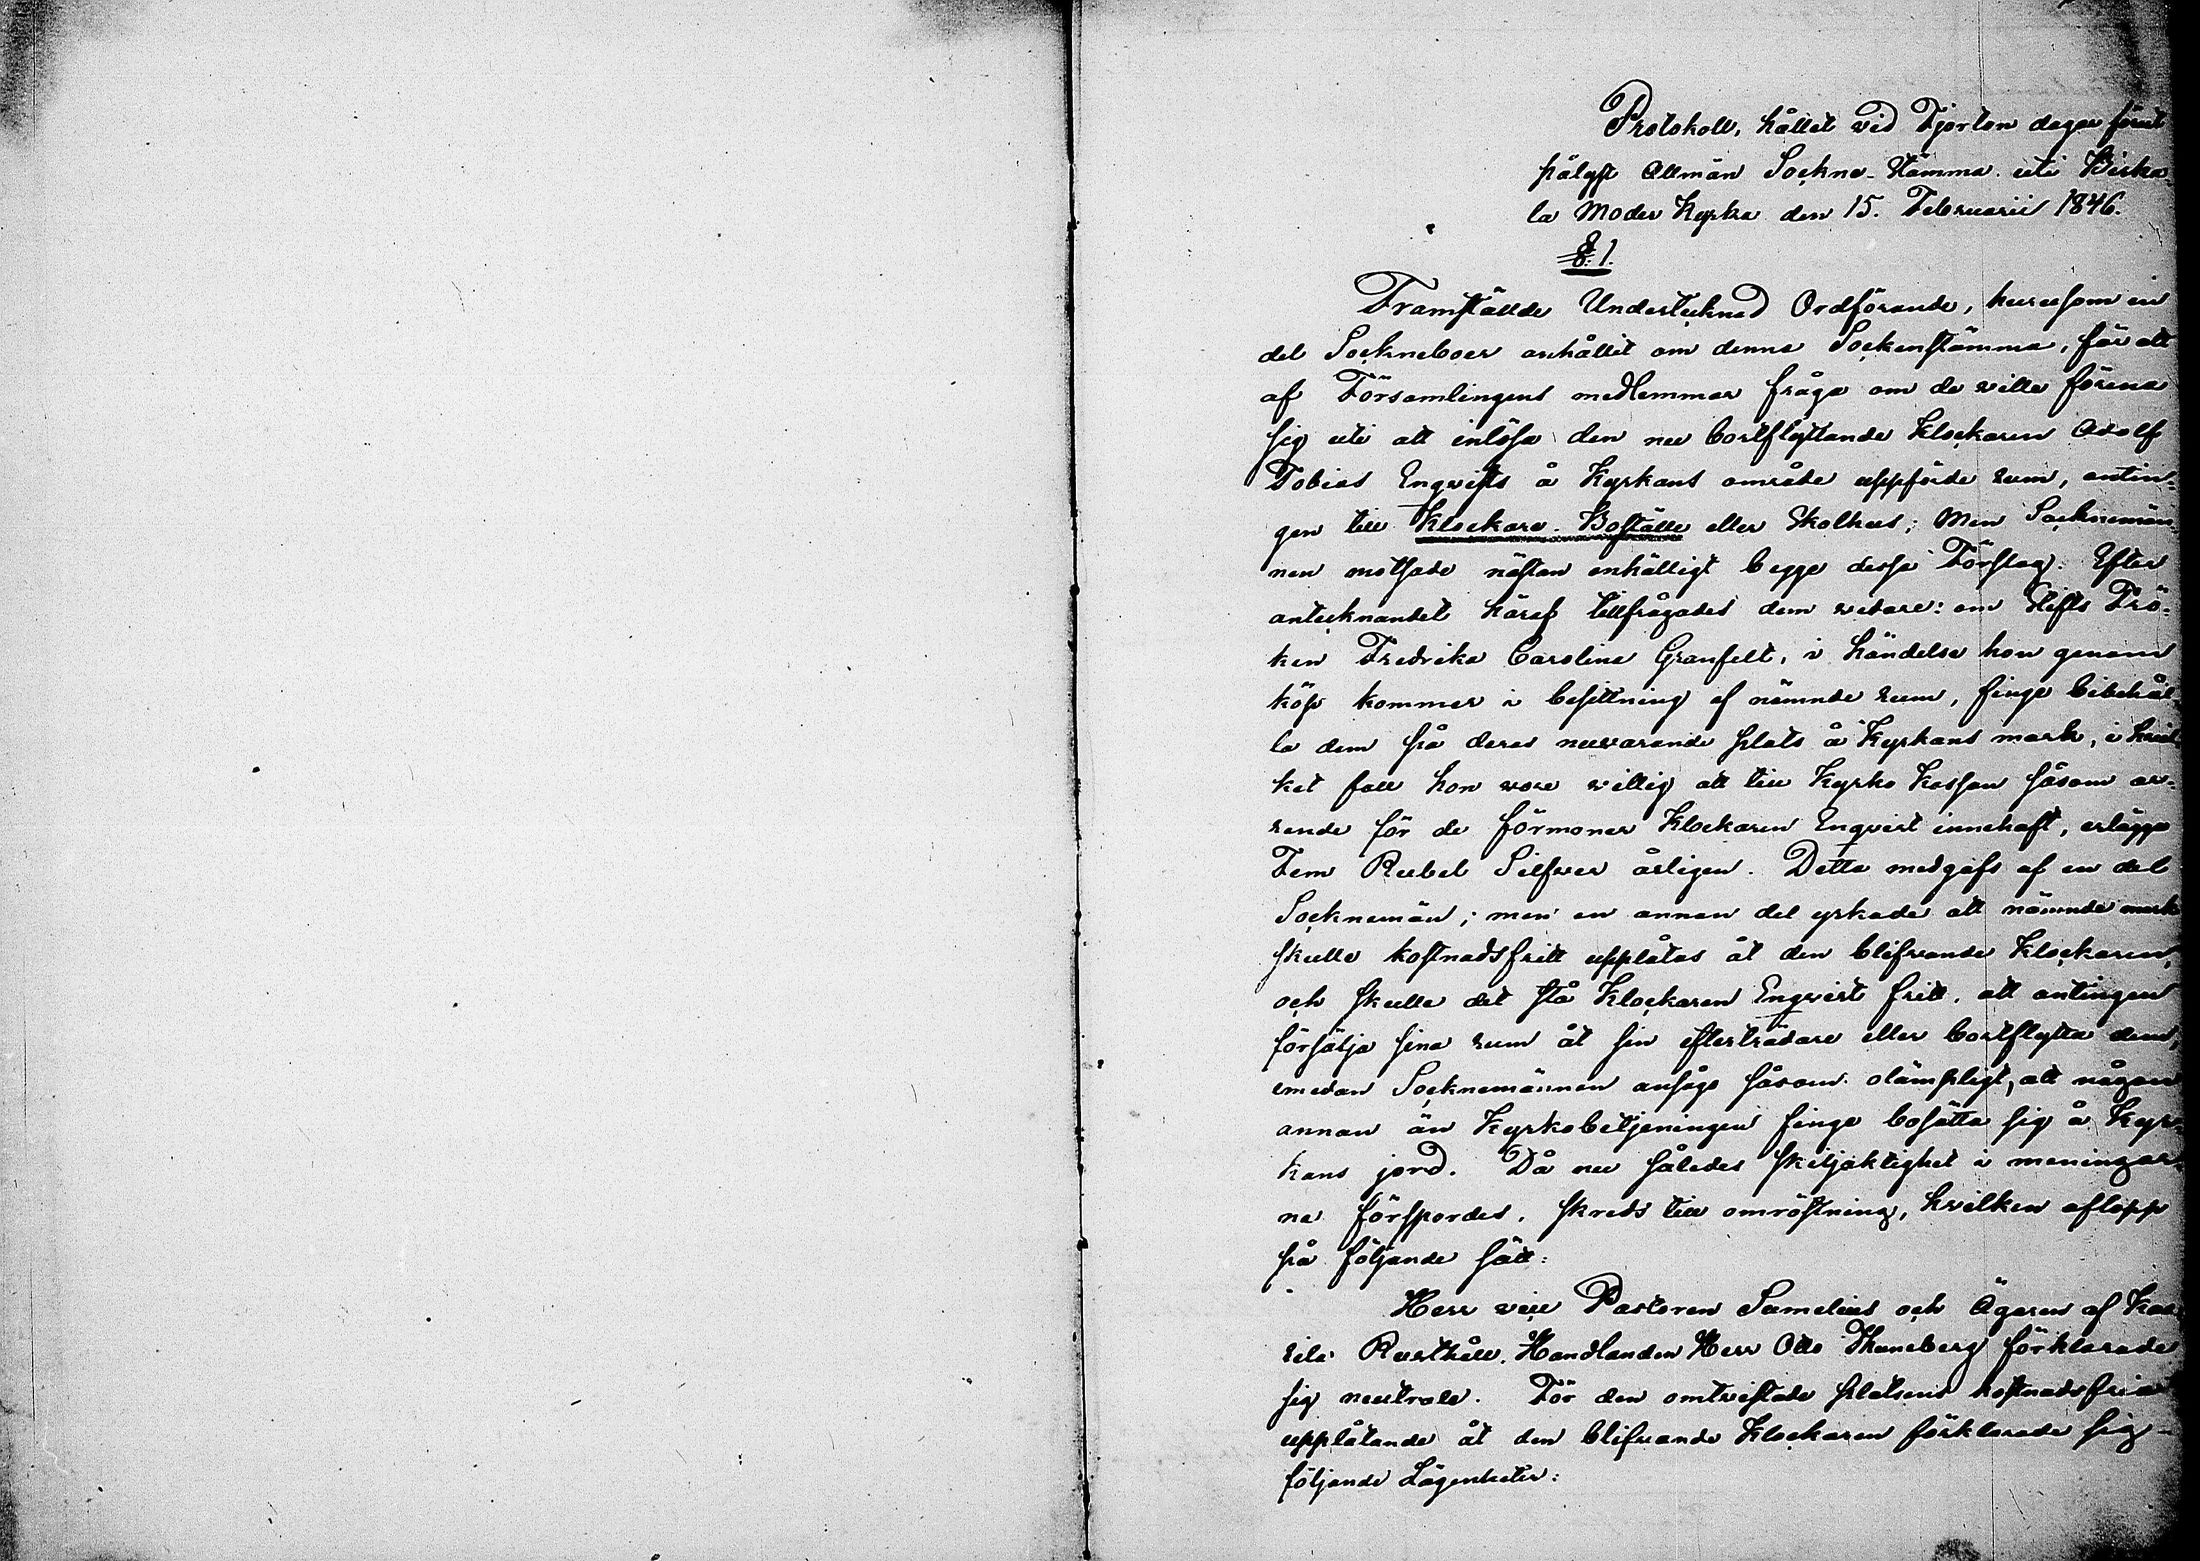 Protokoll, hållet vid Fjorton dagar förut
pålyst Allmän Sockne-Stämma uti Birka-
la Moder Kyrka den 15. Februarii 1846.
§. 1.
Framstälde Undertecknad Ordförande, hurusom en
del Sockneboer anhållit om denna Sockenstämma, för att
af Församlingens medlemmar fråga om de ville förena
sig uti att inlösa den nu bortflyttande Klockaren Adolf
Tobias Engvists å Kyrkans område uppförde rum, antin-
gen till Klockare-Boställe eller Skolhus; Men Socknemän-
nen motsade nästan enhälligt begge dessa Förslag. Efter
antecknandet häraf tillfrågades dem vidare: om Stifts Frö-
ken Fredrika Carolina Granfelt, i händelse hon genom
köp kommer i besittning af nämnde rum, finge bibehål-
la dem på deras nuvarande plats å Kyrkans mark, i hvil-
ket fall hon vore villig att till Kyrko Kassan såsom ar-
rende för de förmoner Klockaren Engvist innehaft, erlägga
Fem Rubel Silfver årligen. Detta medgafs af en del
Socknemän; men en annan del yrkade att nämnde mark
skulle kostnadsfritt upplåtas åt den blifvande Klockaren,
och skulle det stå Klockaren Engvist fritt, att antingen
försälja sina rum åt sin efterträdare eller bortflytta dem,
emedan Socknemännen ansågo såsom olämpligt, att någon
annan än Kyrkobetjeningen finge bosätta sig å Kyr-
kans jord. Då nu således skiljaktighet i meningar-
na förspordes, skreds till omröstning, hvilken aflopp
på följande sätt:
Herr vice Pastoren Sumelius och Ägaren af
Rusthåll, Handlanden Herr Otto Thuneberg förklarade
sig neutrale. För den omtvistade platsens kostnadsfria
upplåtande åt den blifvande Klockaren förklarade sig
följande Lägenheter: